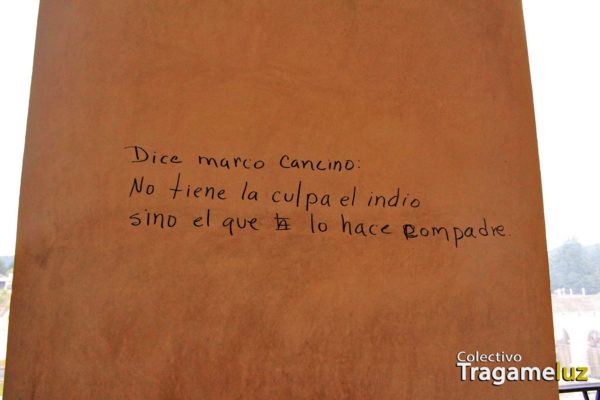 Dice marco Cancino:
No tiene la culpa el indio
sino el que lo hace compadre.
Colectivo
Tragameluz